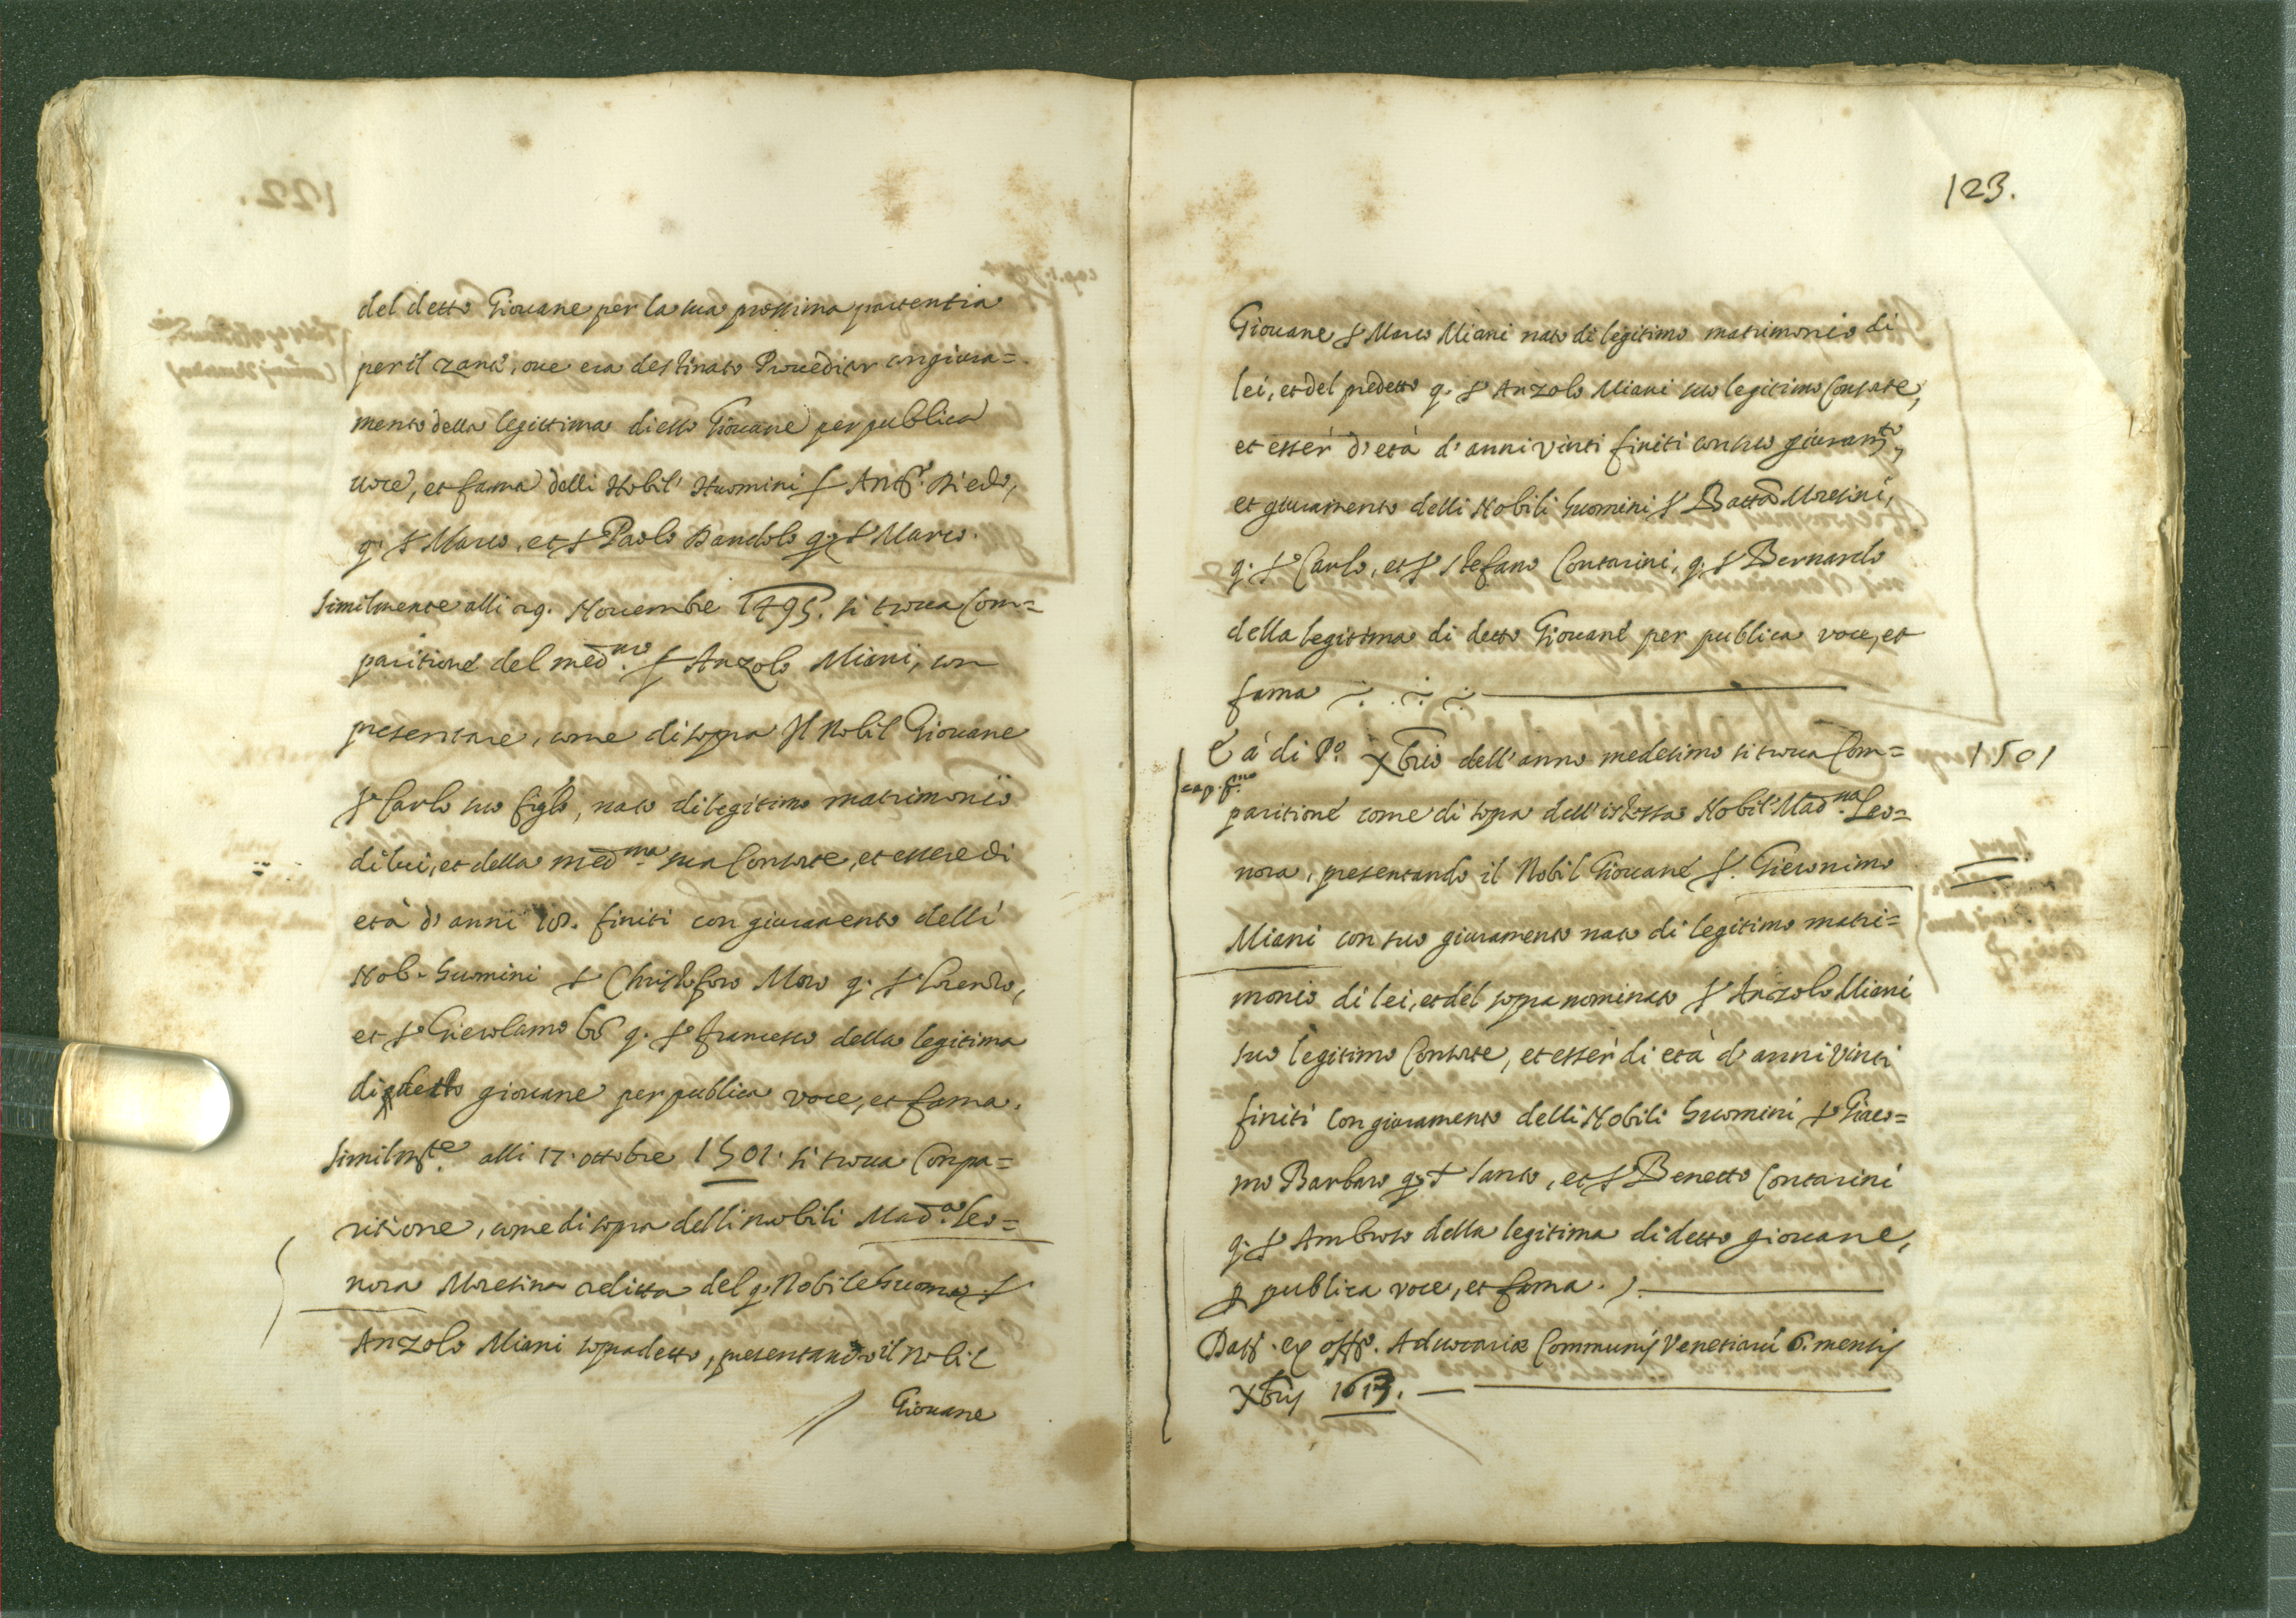 del detto Giouane per la sua prossima partentia
per il Zante, oue era destinato Proueditor con giura=
mento della legittima di esso Giouane per publica
uoce, et fama delli Nobil' Huomini s. Ant.º Diedo,
q. s. Marco, et s. Paolo Dandolo q. s. Marco.
Similmente alli 29. Nouembre 1495. si troua Com=
paritione del med.mo s. Anzolo Miani, con
presentare, come di sopra Il Nobil Giouane
s. Carlo suo figlo, nato di legitimo matrimonio
di lui, et della med.ma sua Consorte, et essere di
età d'anni 18. finiti con giuramento delli
Nob. huomini s. Christoforo Moro q. s. Lorenzo,
et s. Gierolamo q. s. Francesco della legitima
di detto giouane per publica voce, et fama.
Similm.te alli 17. ottobre 1501. si troua Compa=
ritione, come di sopra delli nobili Mad.a Leo=
nora Moresina relitta del q. Nobile huomo s.
Anzolo Miani sopradetto, presentando il Nobil
Giouane
123.
Giouane s. Marco Miani nato di legitimo matrimonio di
lei, et del predetto q. s. Anzolo Miani suo legitimo Consorte,
et esser d'età d'anni vinti finiti con suo giuram.to,
et giuramento delli Nobili huomini s. Batta Moresini,
q. s. Carlo, et s. Stefano Contarini, q. s. Bernardo
della legitima di detto Giouane per publica voce, et
fama
È à di P.º Xbrio dell'anno medesimo si troua Com= 1501
cap. p.mo
paritione come di sopra dell'istessa Nobil Mad.na Leo=
nora, presentando il Nobil Giouane s. Gieronimo
Miani con suo giuramento nato di legitimo matri=
monio di lei, et del sopranominato s. Anzolo Miani
suo legitimo Consorte, et esser di età d'anni vinti
finiti con giuramento delli Nobili huomini s. Giaco=
mo Barbaro q. s. Santo, et s. Benetto Contarini
q. s. Ambroso della legitima di detto giouane,
p publica voce, et fama.
Datt. ex off.º Aduocariæ Communis Venetiarũ 6. mensis
Xbris 1613.